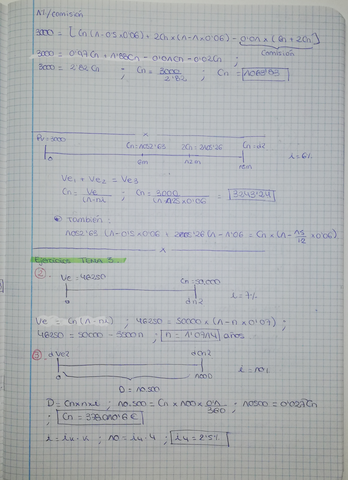 N/comisión
3000 = [Cn(1-0.5x0.06) + 2Cn x (1-1x0.06) - 0.01 x (Cn + 2Cn)]
Comisión
3000 = 0.97Cn + 1.88Cn - 0.01Cn - 0.02Cn ;
3000 = 2.82Cn ; Cn = 3000/2.82 ; Cn = 1063.83
x
Ve = 3000 Cn = 1052.63 2Cn = 2105.26 Cn = d?
0 6m 12m 15m i = 6%
Ve1 + Ve2 = Ve3
Cn = Ve/(1-ni) ; Cn = 3000/(1-1.25x0.06) = 3243.24
• También:
1052.63 (1-0.5x0.06 + 2105.26 (1-1.06 = Cn x (1 - 15/12 x0.06)
x
Ejercicios TEMA 3
② Ve = 46250 Cn = 50,000
0 dn? i = 7%
Ve = Cn (1-ni) ; 46250 = 50000 x (1-n x 0.07) ;
46250 = 50000 - 3500n ; n = 1.0714 años
③ dVe? dCn?
0 100D i = 10%
D = 10.500
D = Cn x n x i ; 10.500 = Cn x 100 x 0.1/360 ; 10500 = 0.027Cn
; Cn = 378010.6 €
i = i4 · k ; 10 = i4 · 4 ; i4 = 2.5%